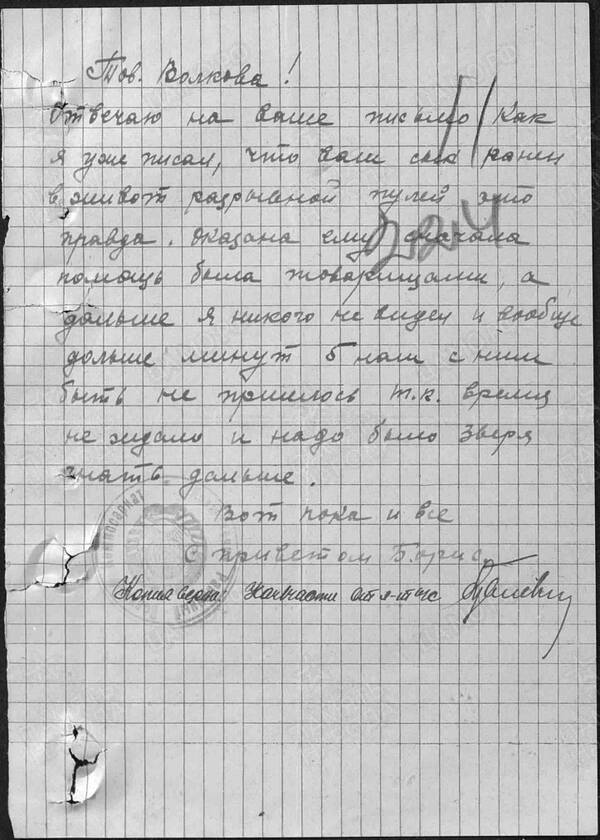 Тов. Волкова!
Отвечаю на ваше письмо Как
я уже писал, что ваш сын ранен
в живот разрывной пулей это
правда. Оказана ему сначала
помощь была товарищами, а
дальше я никого не видел и вообще
дольше минут 5 нам с ним
быть не пришлось т.к. время
не ждало и надо было зверя
гнать дальше.
Вот пока и все
с приветом Борис.
Копия верна: